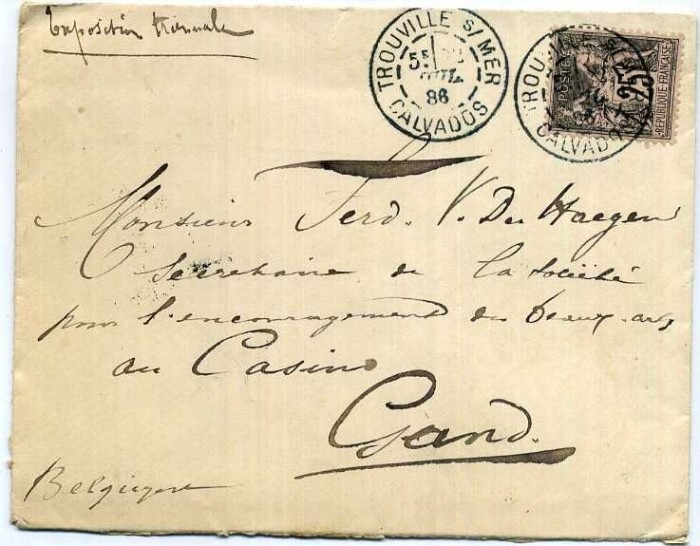 Exposition triennale
TROUVILLE S/MER
5E
JUIL.
86
CALVADOS
TROUVILLE S/M
CALVADOS
POSTES
25
REPUBLIQUE FRANÇAISE
Monsieur Ferd. V. Der Haegen
Secrétaire de la Société
pour l'encouragement des beaux-arts
au Casino
Gand.
Belgique